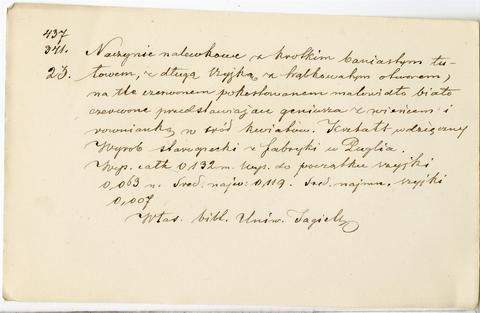 437
341.
23. Naczynie nalewkowe z krótkim baniastym tu-
łowem, z długą szyjką z lejkowatym otworem,
na tle czerwonem pokostowanem malowidło biało
czerwone przedstawiające geniusza z wieńcem i
rownianką, w śród kwiatów. Kształt wdzięczny
Wyrob starogrecki z fabryki w Puglia.
Wys. całk 0,132 m. wys. do początku szyjki
0,063 m. Sred. najw. 0,119. Sred. najmn. szyjki
0,007
Włas. bibl. Uniw. Jagiell.